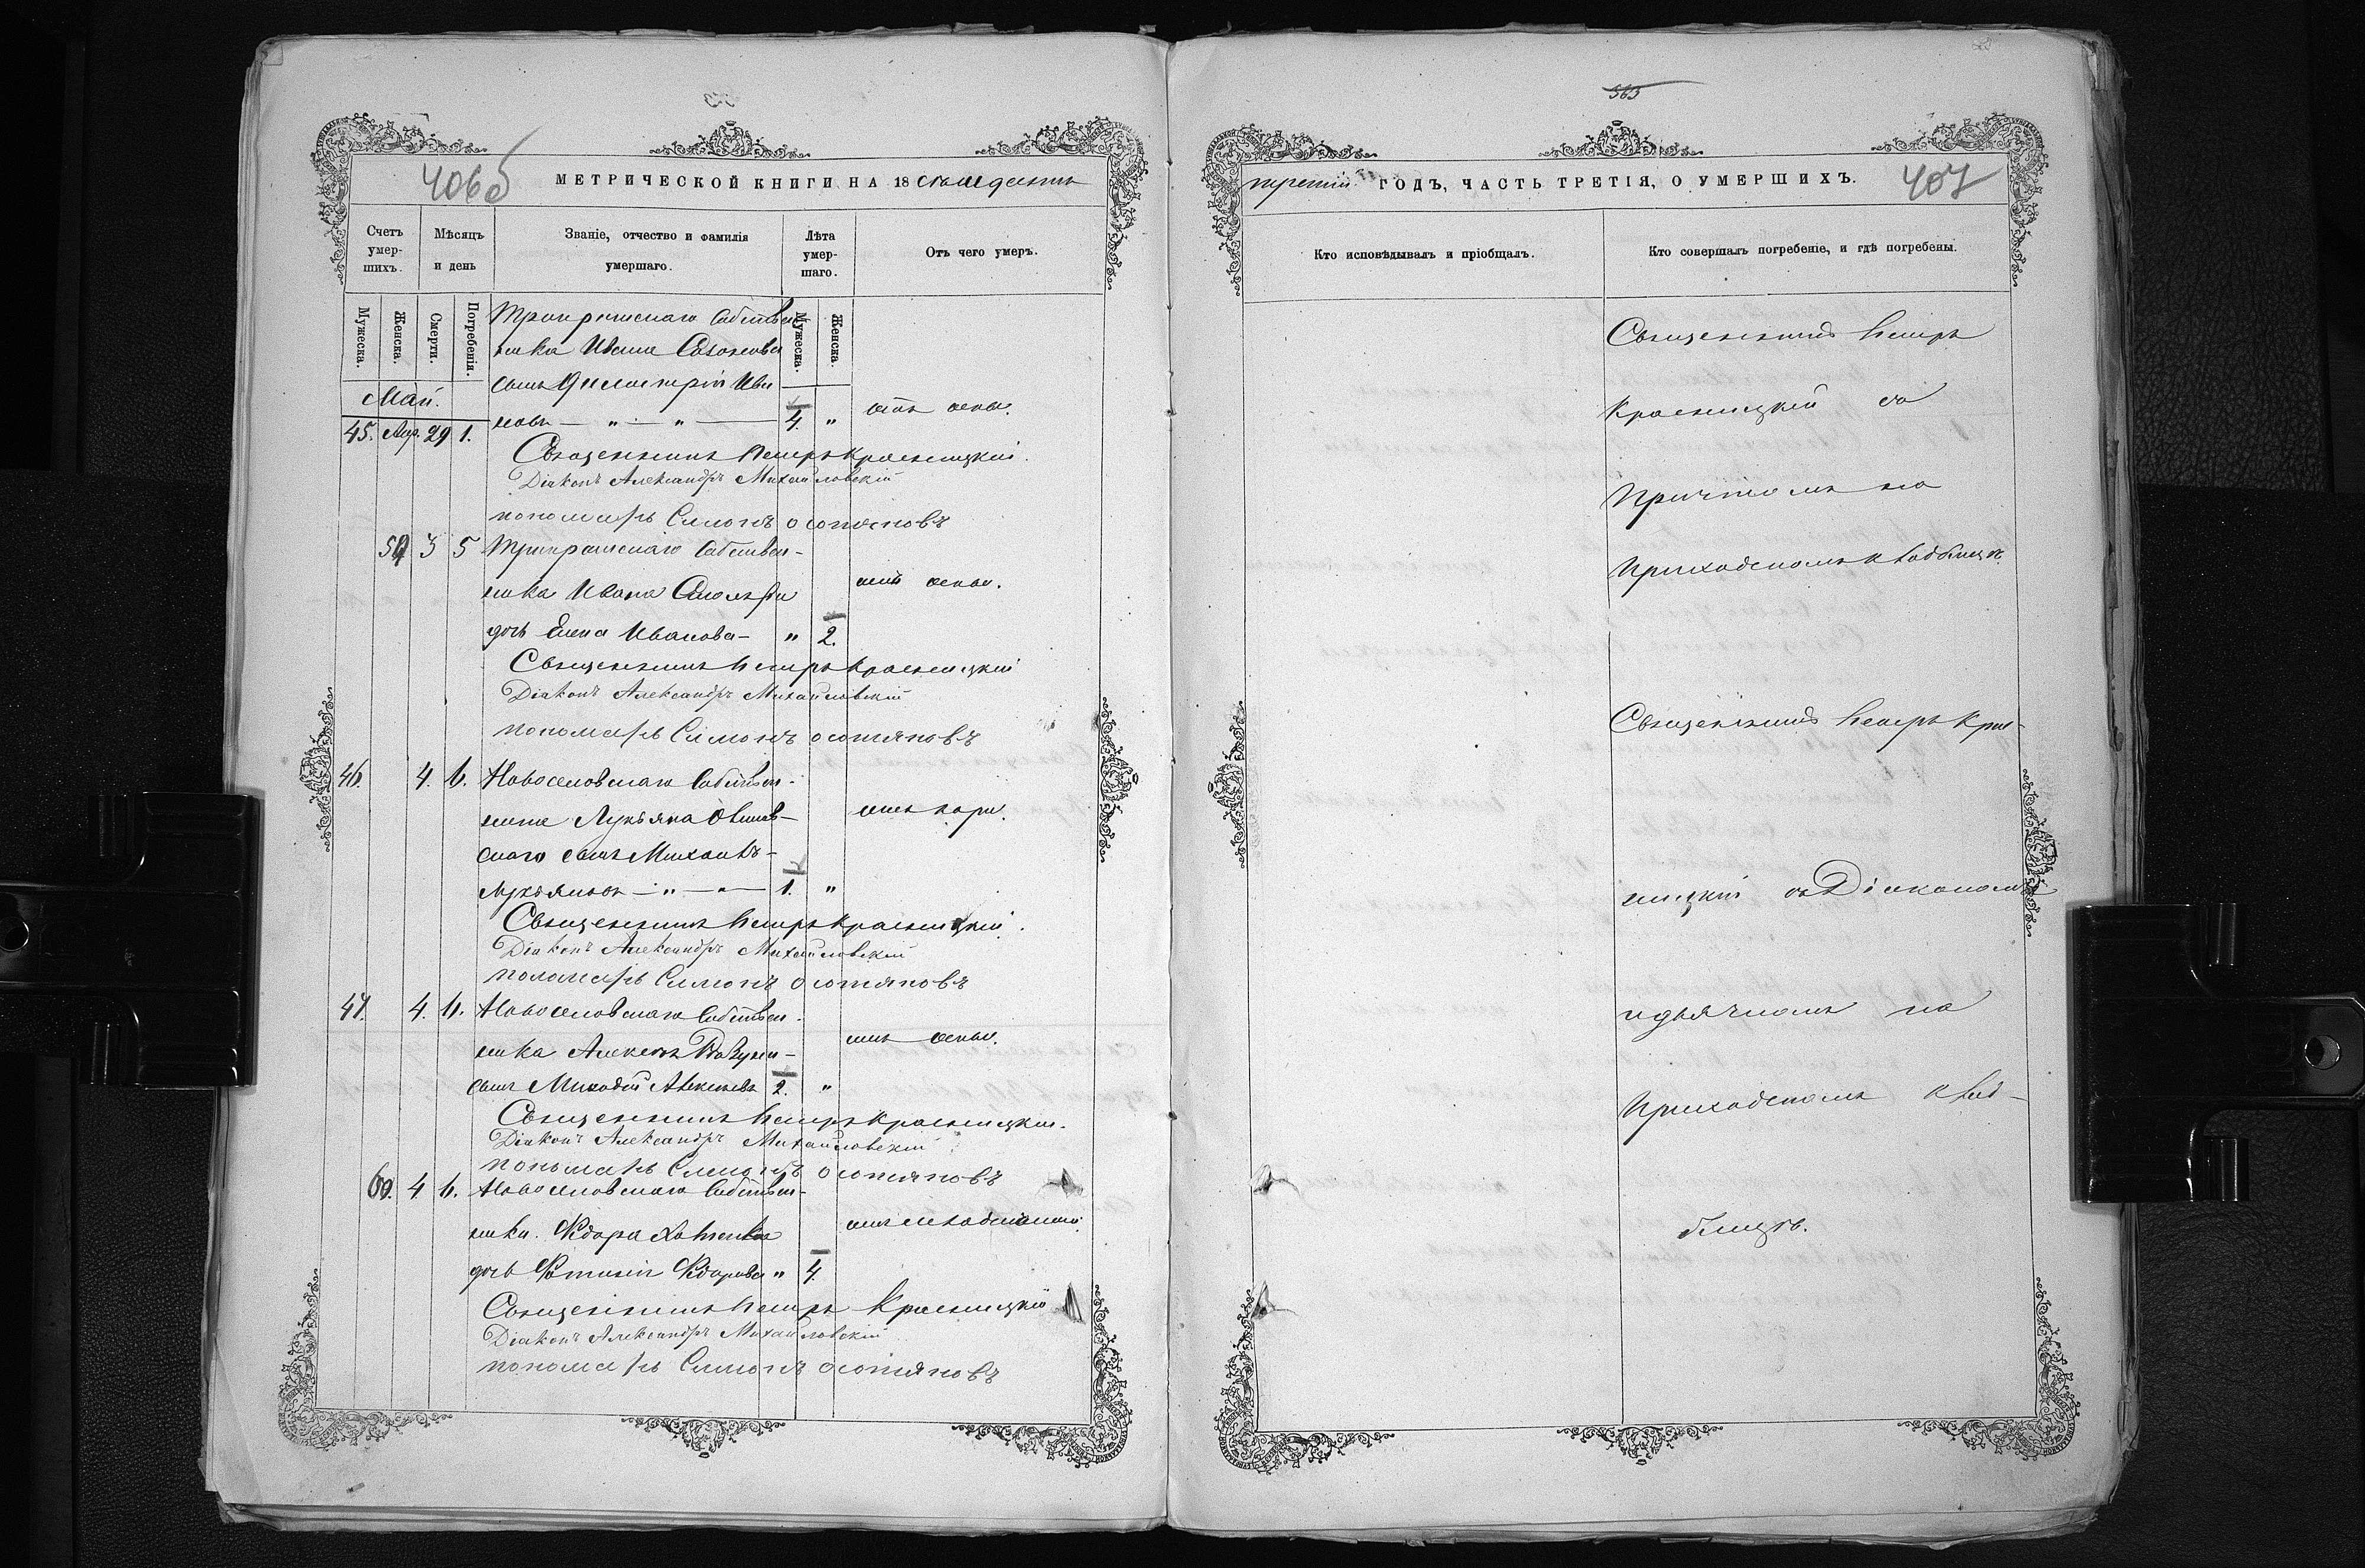 406 об
МЕТРИЧЕСКОЙ КНИГИ НА 18 семьдесятъ
Счетъ умер-шихъ.
Мѣсяцъ и день
Званіе, отчество и фамилія умершаго.
Лѣта умер-шаго.
Отъ чего умеръ.
Мужеска.
Женска.
Смерти.
Погребенія.
Мужеска.
Женска.
Май.
собствен-
ника Ивана
сынъ Димитрій Ива
45. Апр. 29 1. новъ — " — " — 4. " отъ оспы.
Священникъ Петръ Красницкій.
Діаконъ Александръ Михайловскій
пономарь Симонъ
59 3 5 собствен-
ника Ивана отъ оспы.
дочь Елена Иванова — " 2.
Священникъ Петръ Красницкій
Діаконъ Александръ Михайловскій
пономарь Симонъ
46. 4. 6. Новоселовскаго собствен-
Лукьяна отъ кори.
скаго сынъ Михаилъ
Лукьяновъ — " — " — 1. "
Священникъ Петръ Красницкій.
Діаконъ Александръ Михайловскій
пономарь Симонъ
47. 4. 6. Новоселовскаго собствен-
ника Алексѣя отъ оспы.
сынъ Алексѣевъ 2. "
Священникъ Петръ Красницкій.
Діаконъ Александръ Михайловскій
пономарь Симонъ
60. 4 6. Новоселовскаго собствен-
ника Ѳедора
дочь Ѳедорова " 4.
Священникъ Петръ Красницкій
Діаконъ Александръ Михайловскій
пономарь Симонъ
565
третій ГОДЪ, ЧАСТЬ ТРЕТІЯ, О УМЕРШИХЪ.
407
Кто исповѣдывалъ и пріобщалъ.
Кто совершалъ погребеніе, и гдѣ погребены.
Священникъ Петръ
Красницкій съ
Причтомъ на
Приходскомъ кладбищѣ.
Священникъ Петръ Крас-
ницкій съ Діакономъ
и дьячкомъ на
Приходскомъ клад-
бищѣ.